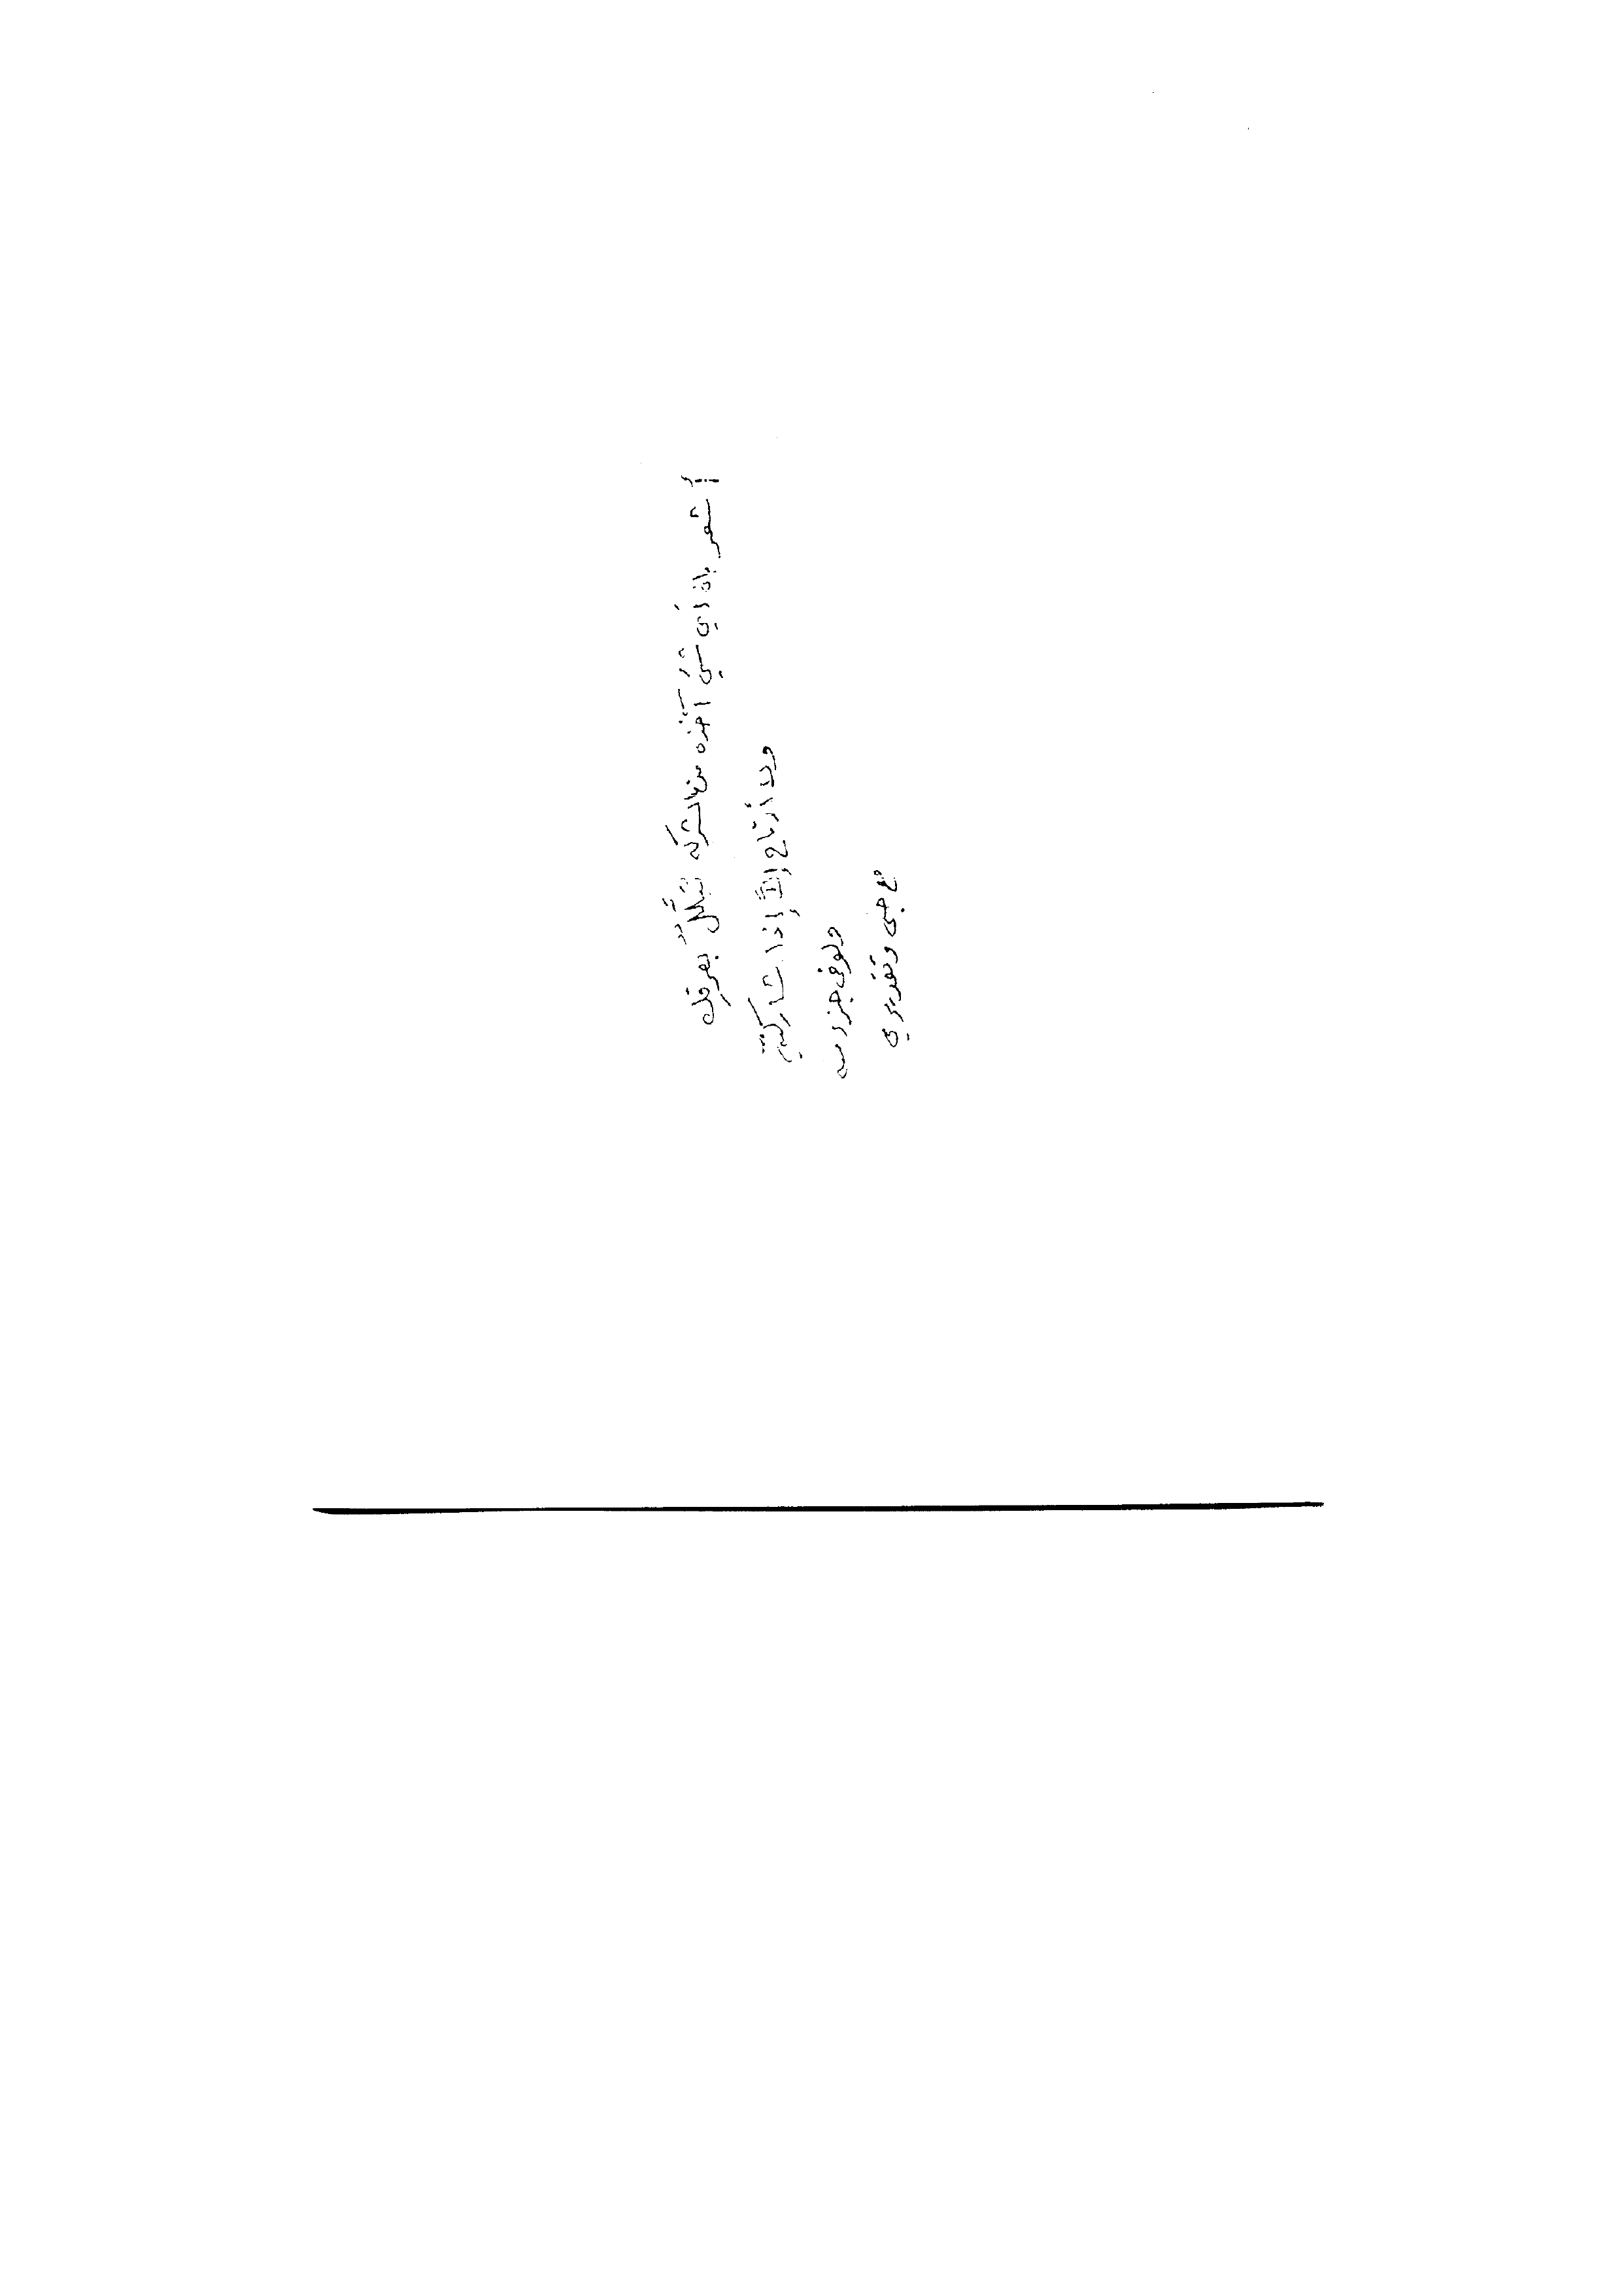 أشعر بان أي شيءٌ آخذه من الشركه تبلل بعرقك
ولا أرتاح إلّا إذا شاركتكم
ولو في جزء منه
مع حبي وتقديري